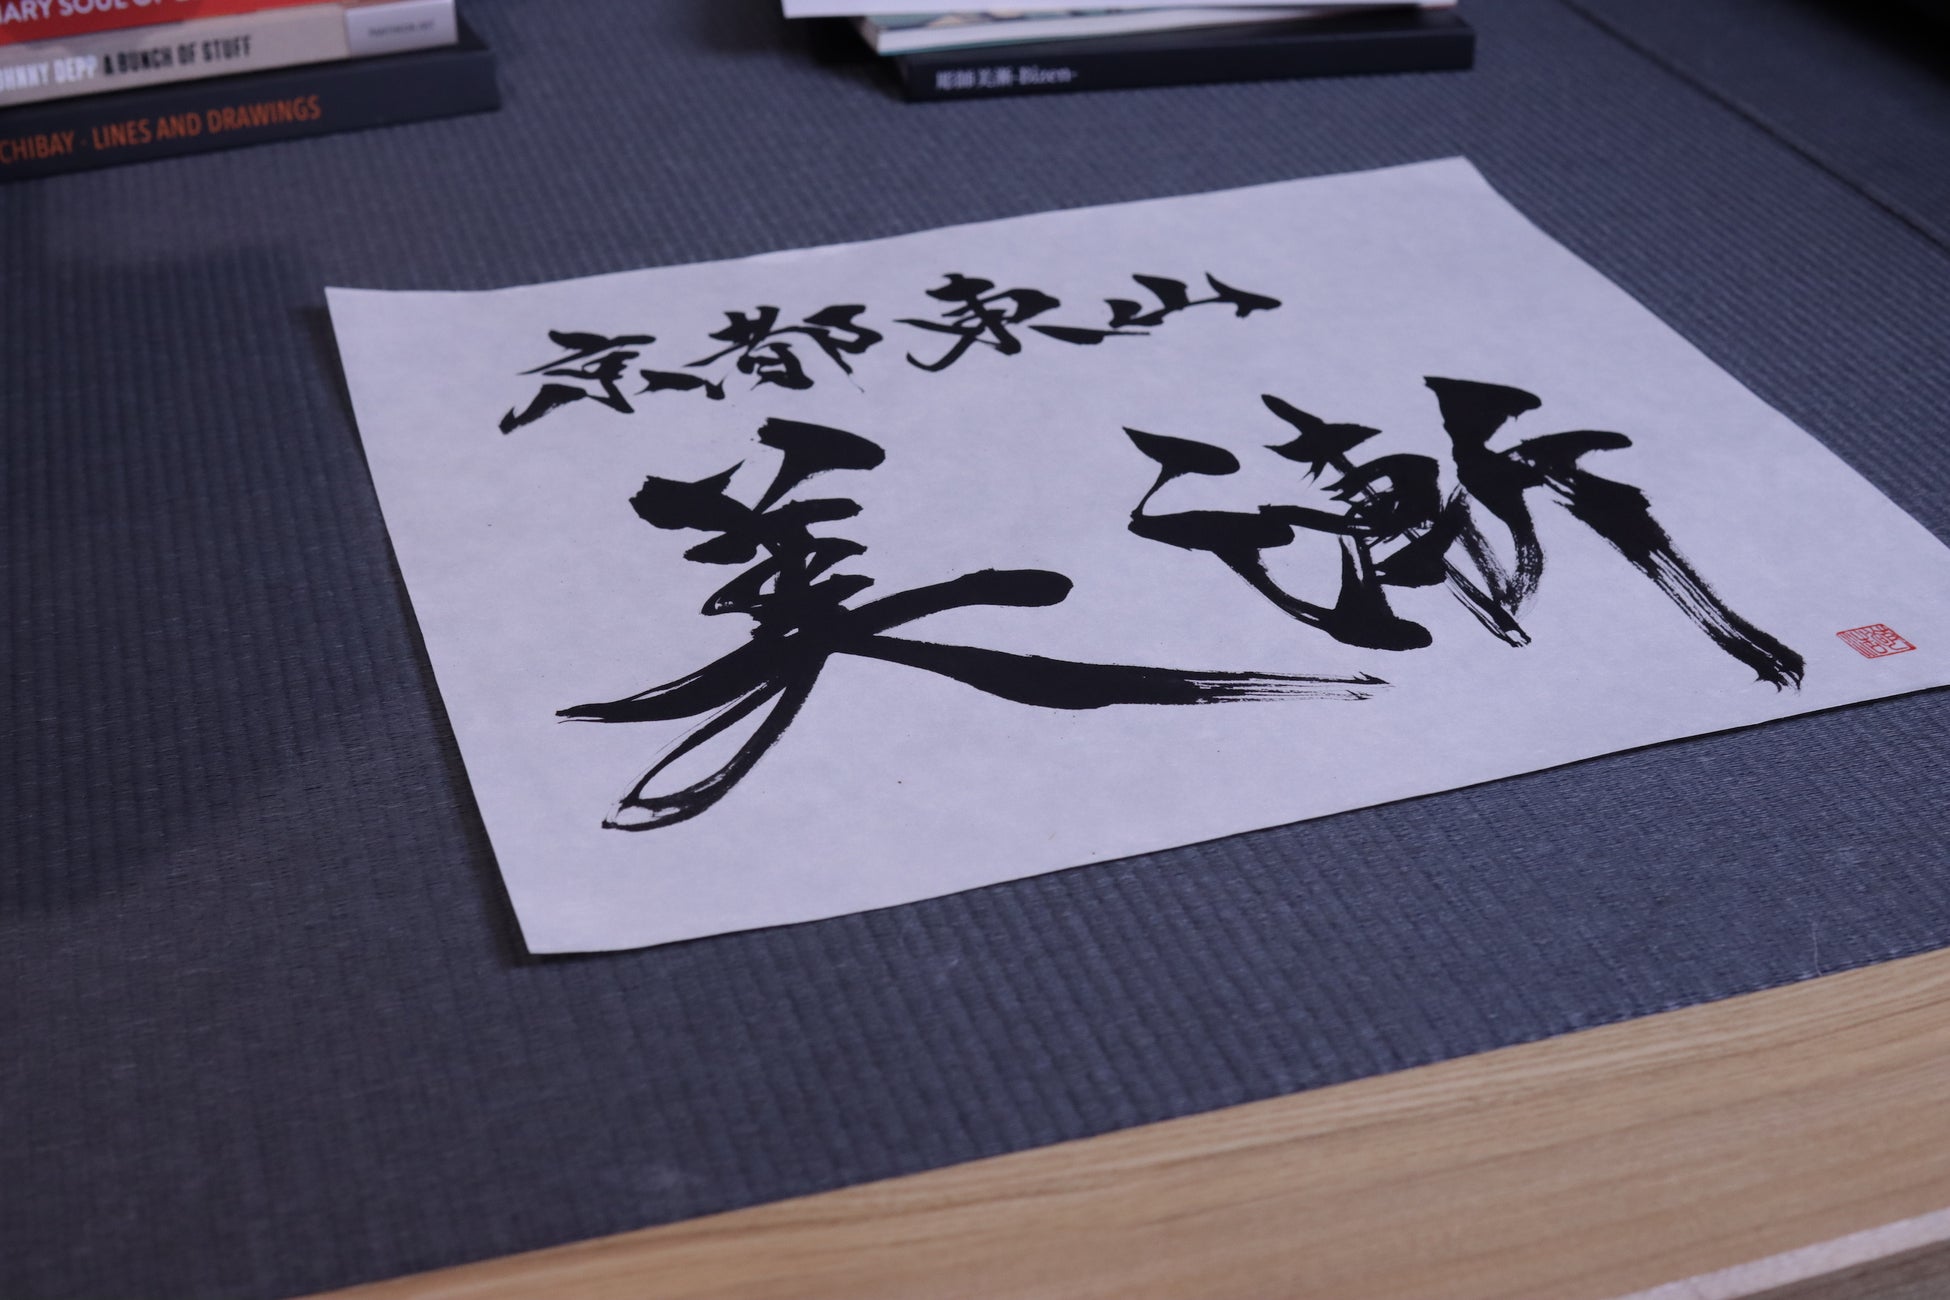 ARY SOUL OF
OHNNY DEPP A BUNCH OF STUFF
CHIBAY · LINES AND DRAWINGS
彫師美漸-Bizen-
京都東山
美漸